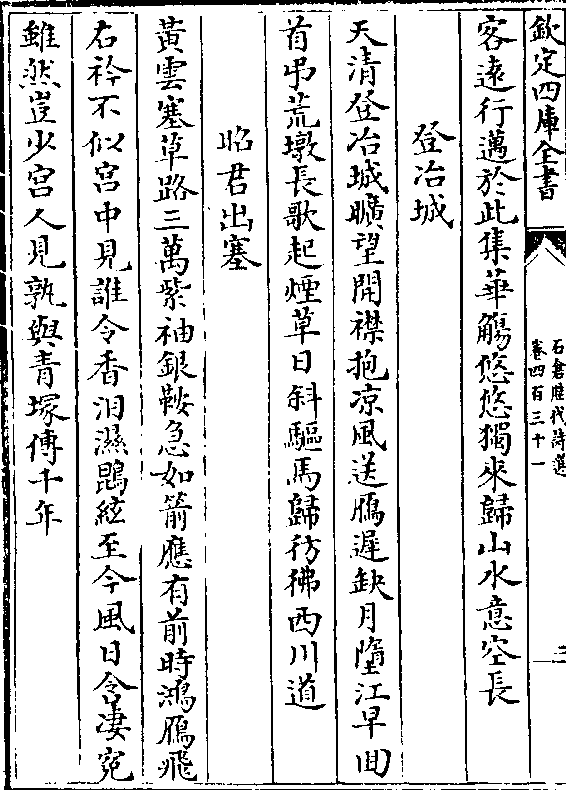 欽定四庫全書
石倉歷代詩選
卷四百三十一
二
客遠行邁於此集華觴悠悠獨來歸山水意空長
登冶城
天清登冶城曠望開襟抱凉風送鴈遲缺月墮江早囬
首弔荒墩長歌起煙草日斜驅馬歸彷彿西川道
昭君出塞
黃雲塞草路三萬紫袖銀鞍急如箭應有前時鴻鴈飛
右衿不似宮中見誰令香淚濕鵾絃至今風日令凄宛
雖然豈少宮人見孰與青塚傳千年